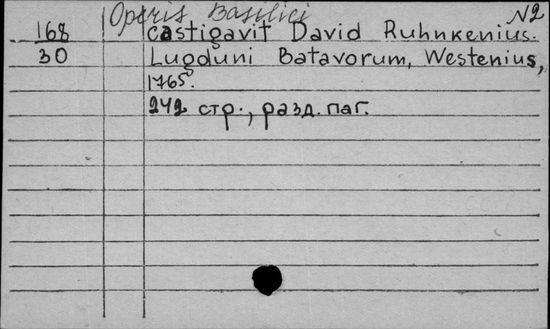 Operis Basilici №2
168 castigavit David Ruhnkenius.
30 Lugduni Batavorum, Westenius,
1765.
242 стр., разд. паг.